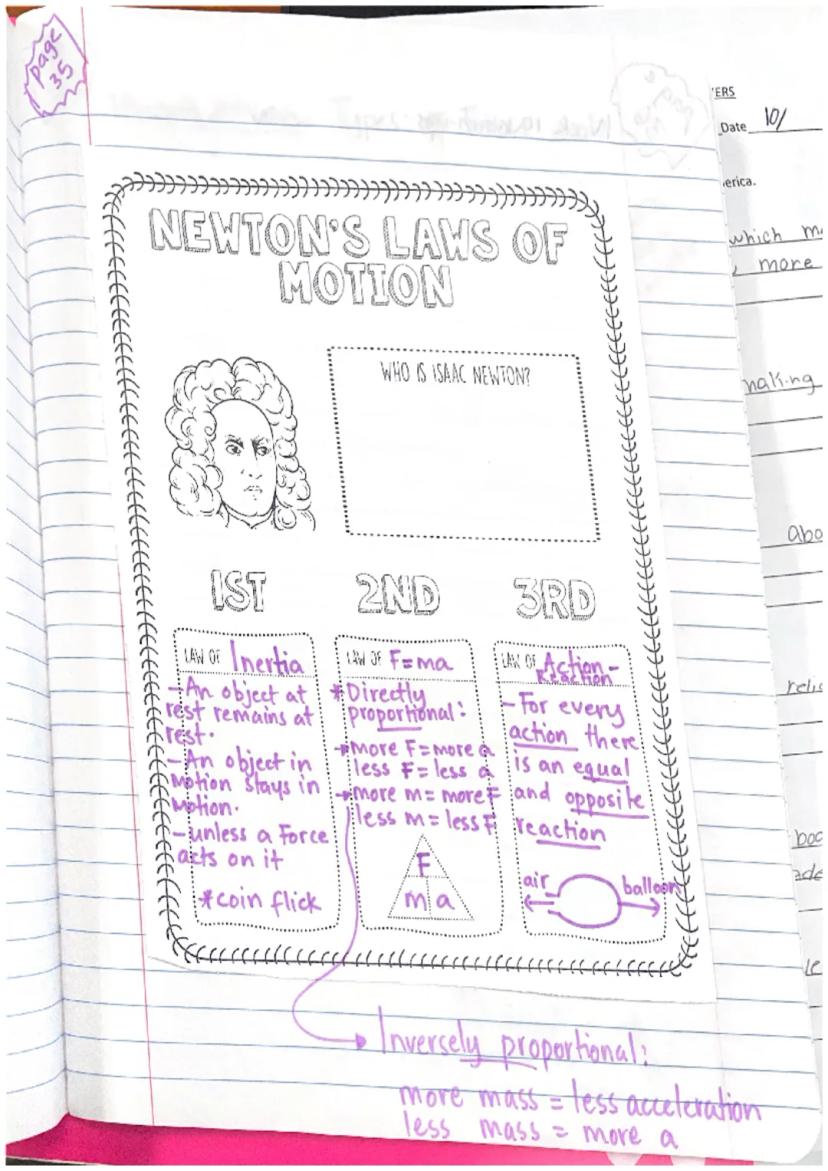 page
35
NEWTON'S LAWS OF
MOTION
WHO IS ISAAC NEWTON?
1ST
LAW OF Inertia
-An object at
rest remains at
rest.
-An object in
motion stays in
motion.
-unless a Force
acts on it
*coin flick
2ND
LAW OF F=ma
*Directly
proportional:
→more F=more a
less F=less a
→more m=more F
less m=less F
F
m a
3RD
LAW OF Action-
Reaction
-For every
action there
is an equal
and opposite
reaction
air balloon
→Inversely proportional:
more mass = less acceleration
less mass = more a
'ERS
Date 10/
erica.
which m
more
making
abo
relig
boo
ade
le